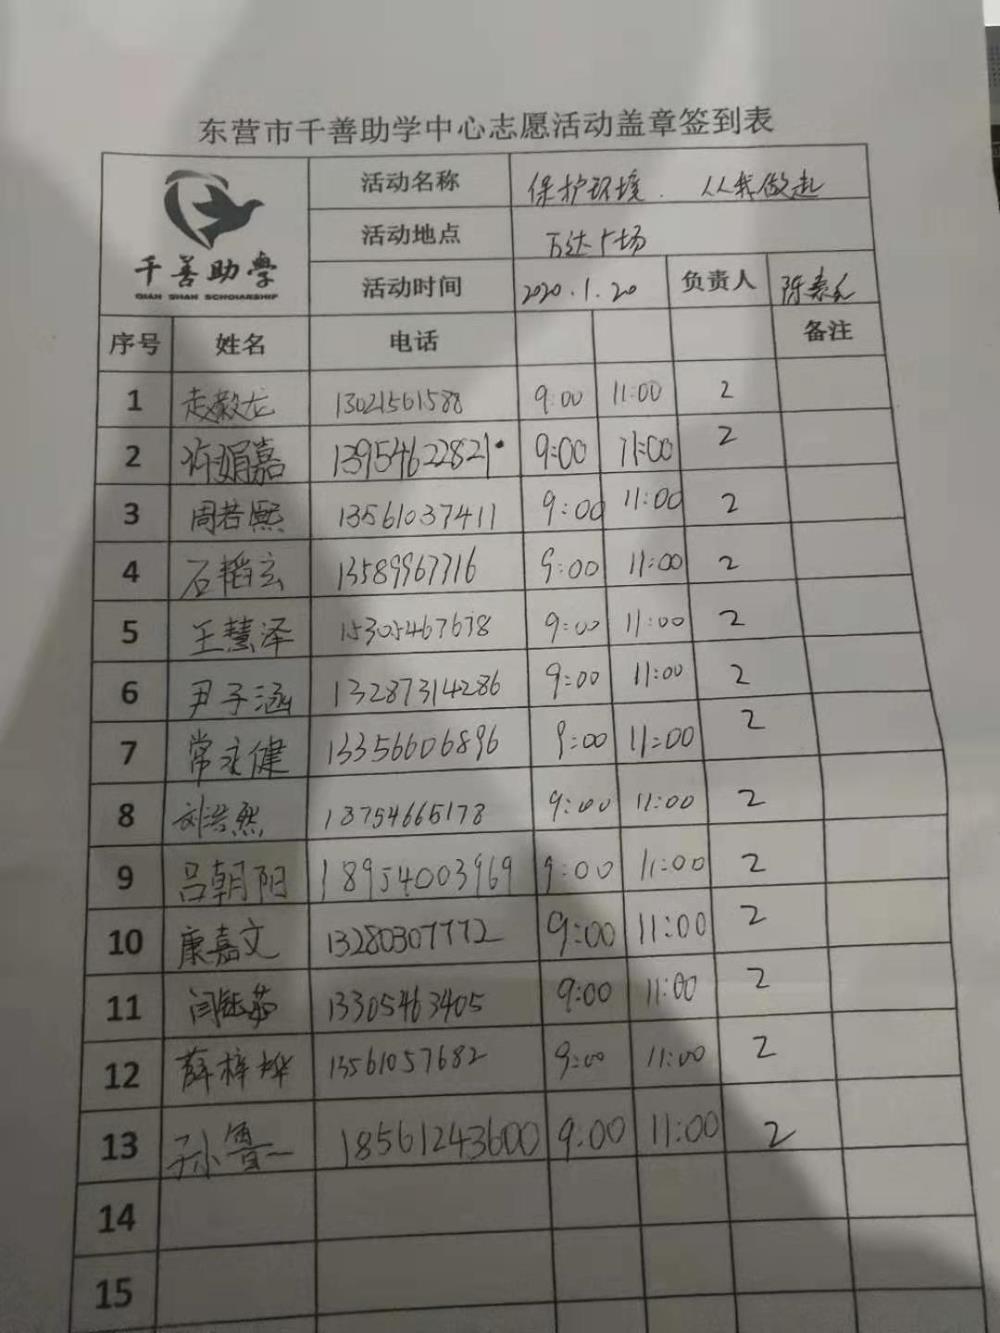 东营市千善助学中心志愿活动盖章签到表
千善助学
QIAN SHAN SCHOLARSHIP
活动名称 保护环境. 从我做起
活动地点 万达广场
活动时间 2020.1.20 负责人 陈
序号 姓名 电话 备注
1 13021561588 9:00 11:00 2
2 许娟嘉 13954622821 9:00 11:00 2
3 周若熙 13561037411 9:00 11:00 2
4 石韬玄 13589967716 9:00 11:00 2
5 王慧泽 15305467678 9:00 11:00 2
6 尹子涵 13287314286 9:00 11:00 2
7 常永健 13356606896 9:00 11:00 2
8 刘浩然 18754665178 9:00 11:00 2
9 吕朝阳 18954003969 9:00 11:00 2
10 康嘉文 13280307772 9:00 11:00 2
11 闫钰茹 13305463405 9:00 11:00 2
12 薛梓烨 13561057682 9:00 11:00 2
13 孙鲁一 18561243600 9:00 11:00 2
14
15